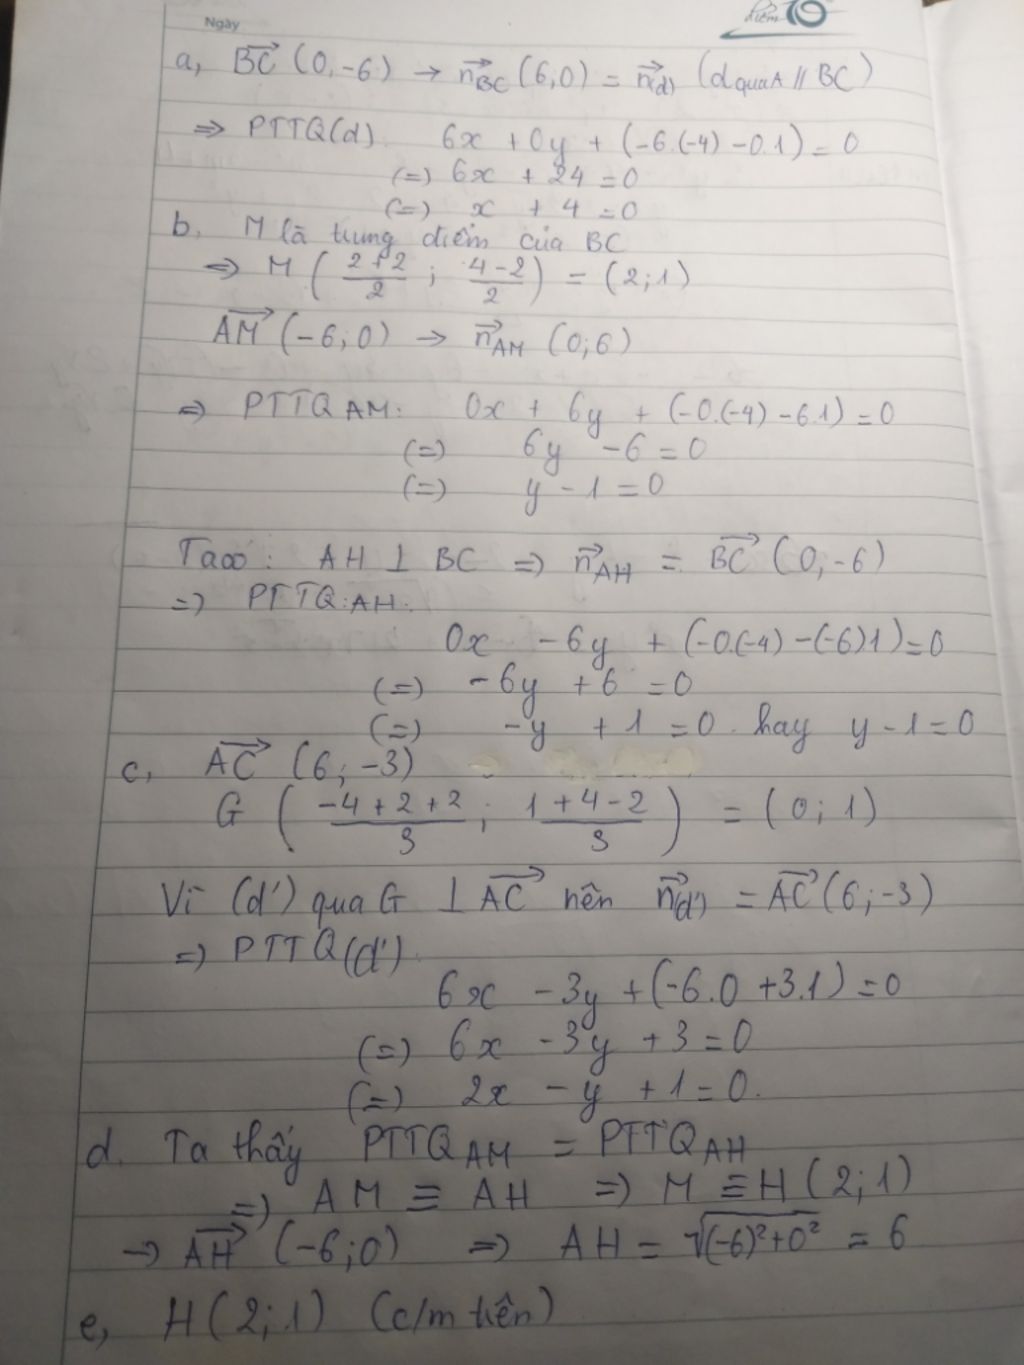 Ngày
điểm 10
a, BC→ (0,-6) → n→BC (6,0) = n→(d) (d qua A // BC)
=> PTTQ(d). 6x + 0y + (-6.(-4) -0.1) = 0
(=) 6x + 24 = 0
(=) x + 4 = 0
b. M là trung điểm của BC
=> M ( 2+2/2 ; 4-2/2 ) = (2;1)
AM→ (-6;0) → n→AM (0;6)
=> PTTQ AM: 0x + 6y + (-0.(-4) -6.1) = 0
(=) 6y -6 = 0
(=) y -1 = 0
Ta có : AH ⊥ BC => n→AH = BC→ (0,-6)
=> PTTQ:AH:
0x - 6y + (-0.(-4) -(-6)1) = 0
(=) -6y + 6 = 0
(=) -y + 1 = 0 hay y -1 = 0
c, AC→ (6; -3)
G ( -4+2+2/3 ; 1+4-2/3 ) = (0;1)
Vì (d') qua G ⊥ AC→ nên n→(d') = AC→ (6;-3)
=> PTTQ(d').
6x - 3y + (-6.0 +3.1) = 0
(=) 6x - 3y + 3 = 0
(=) 2x - y + 1 = 0.
d. Ta thấy PTTQ AM = PTTQ AH
=> AM ≡ AH => M ≡ H (2;1)
→ AH→ (-6;0) => AH = √(-6)²+0² = 6
e, H(2;1) (c/m trên)